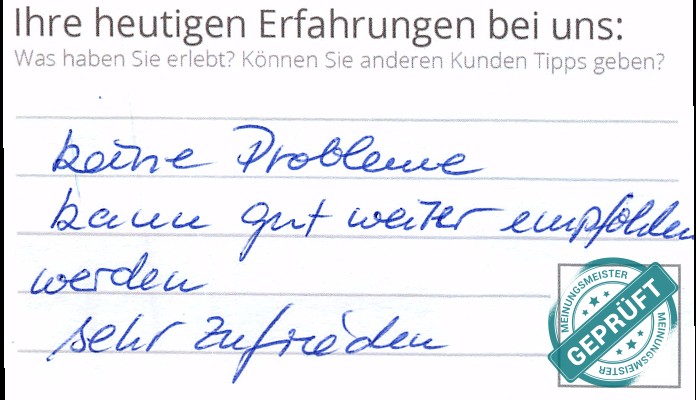 Ihre heutigen Erfahrungen bei uns:
Was haben Sie erlebt? Können Sie anderen Kunden Tipps geben?
keine Probleme
kann gut weiter empfohlen
werden
sehr zufrieden
MEINUNGSMEISTER
GEPRÜFT
MEINUNGSMEISTER